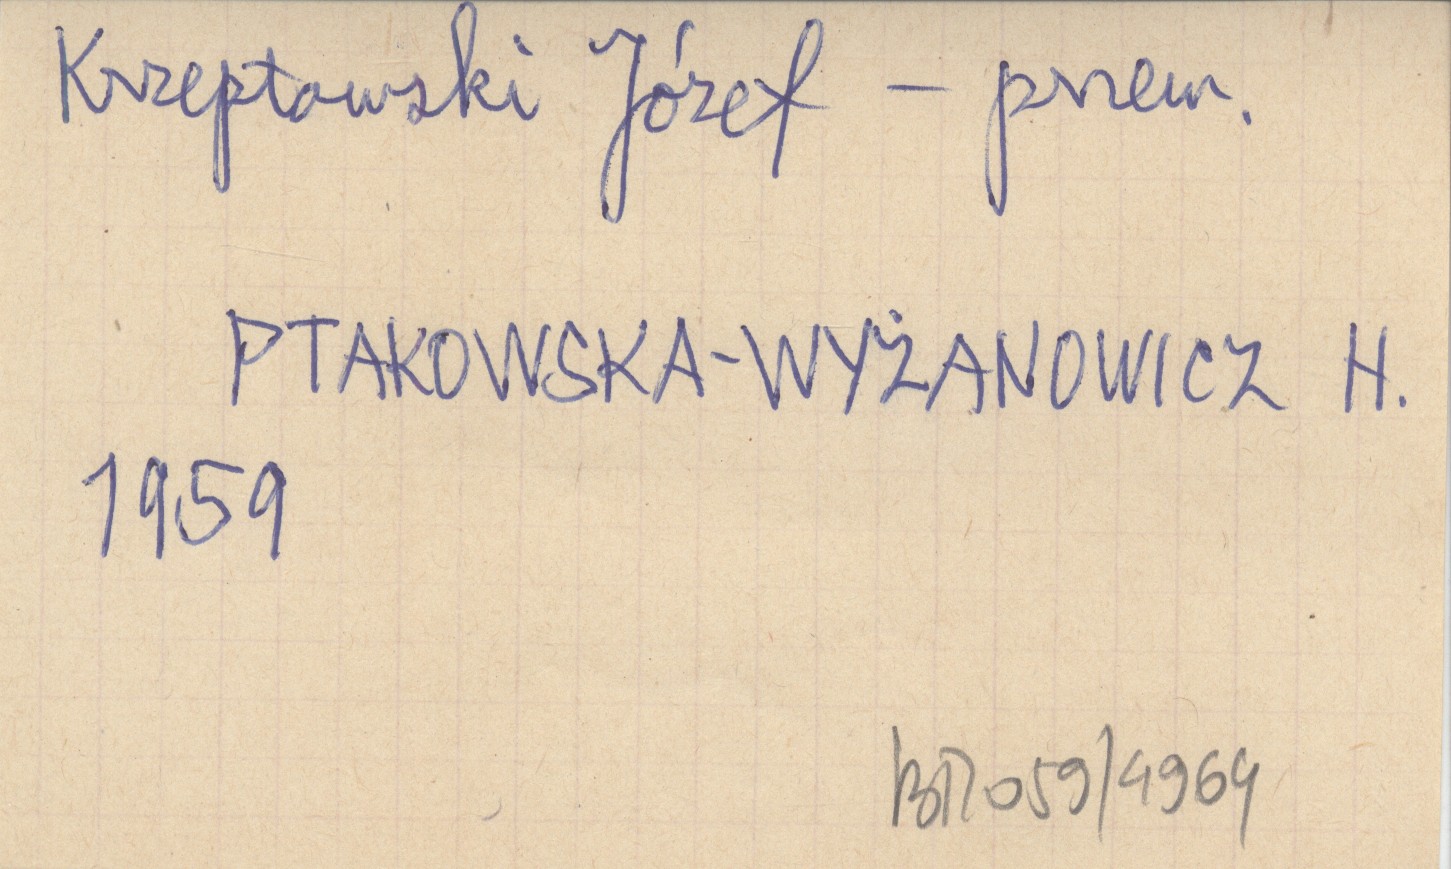 Krzeptowski Józef – przew.
PTAKOWSKA-WYŻANOWICZ H.
1959
059/4964